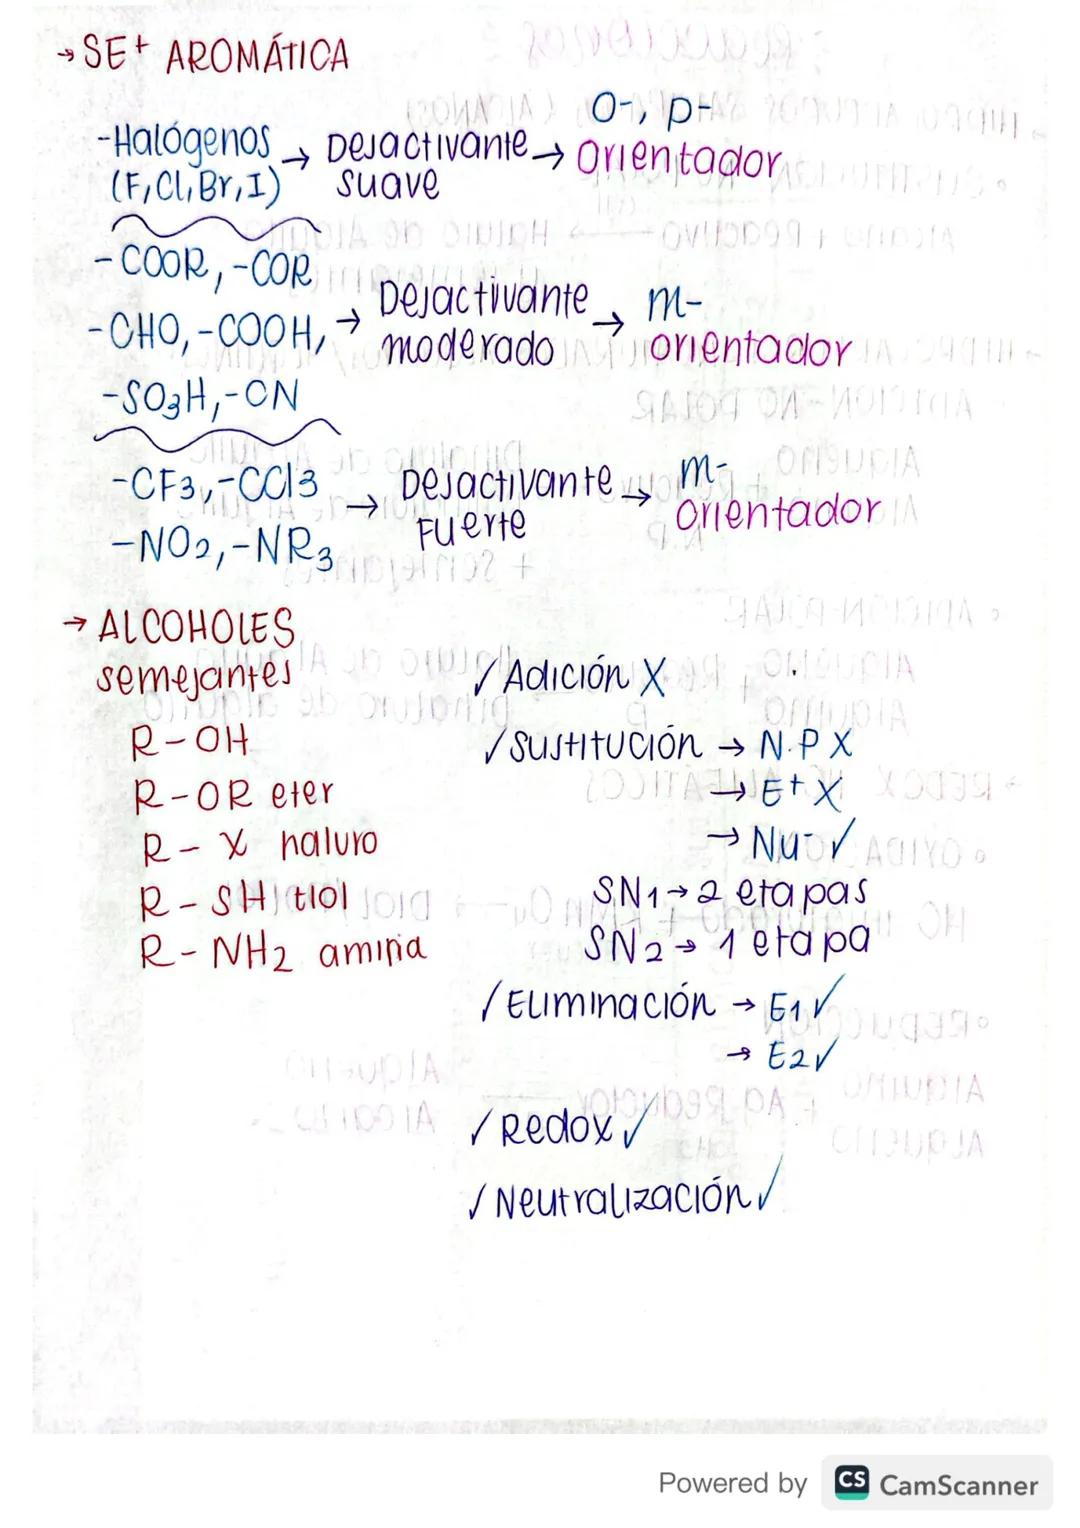 → SE+ AROMÁTICA
-Halógenos (F, Cl, Br, I) → Desactivante suave → O-, p- Orientador
-COOR, -COR
-CHO, -COOH, → Desactivante moderado → m- orientador
-SO3H, -CN
-CF3, -CCl3
-NO2, -NR3 → Desactivante Fuerte → m- orientador
→ ALCOHOLES
semejantes
R-OH
R-OR eter
R-X haluro
R-SH tiol
R-NH2 amina
✓ Adición X
✓ Sustitución → N.P X
→ E+ X
→ Nu- ✓
SN1 → 2 etapas
SN2 → 1 etapa
✓ Eliminación → E1 ✓
→ E2 ✓
✓ Redox ✓
✓ Neutralización ✓
Powered by CS CamScanner